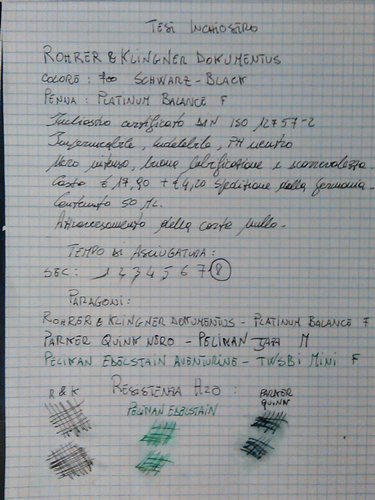 TEST INCHIOSTRO
ROHRER & KLINGNER DOKUMENTUS
COLORE : 700 SCHWARZ - BLACK
PENNA : PLATINUM BALANCE F
Inchiostro certificato DIN ISO 12757-2
Impermeabile, indelebile, PH neutro
Nero intenso, buona lubrificazione e scorrevolezza.
Costo € 17,90 + € 4,20 spedizione dalla Germania.
Contenuto 50 ML.
Attraversamento della carta nullo.
TEMPO DI ASCIUGATURA :
SEC : 1 2 3 4 5 6 7 8
PARAGONI :
ROHRER & KLINGNER DOKUMENTUS - PLATINUM BALANCE F
PARKER QUINK NERO - PELIKAN M
PELIKAN EDELSTAIN AVENTURINE - TWSBI MINI F
RESISTENZA H2O :
R & K
PELIKAN EDELSTAIN
PARKER
QUINK